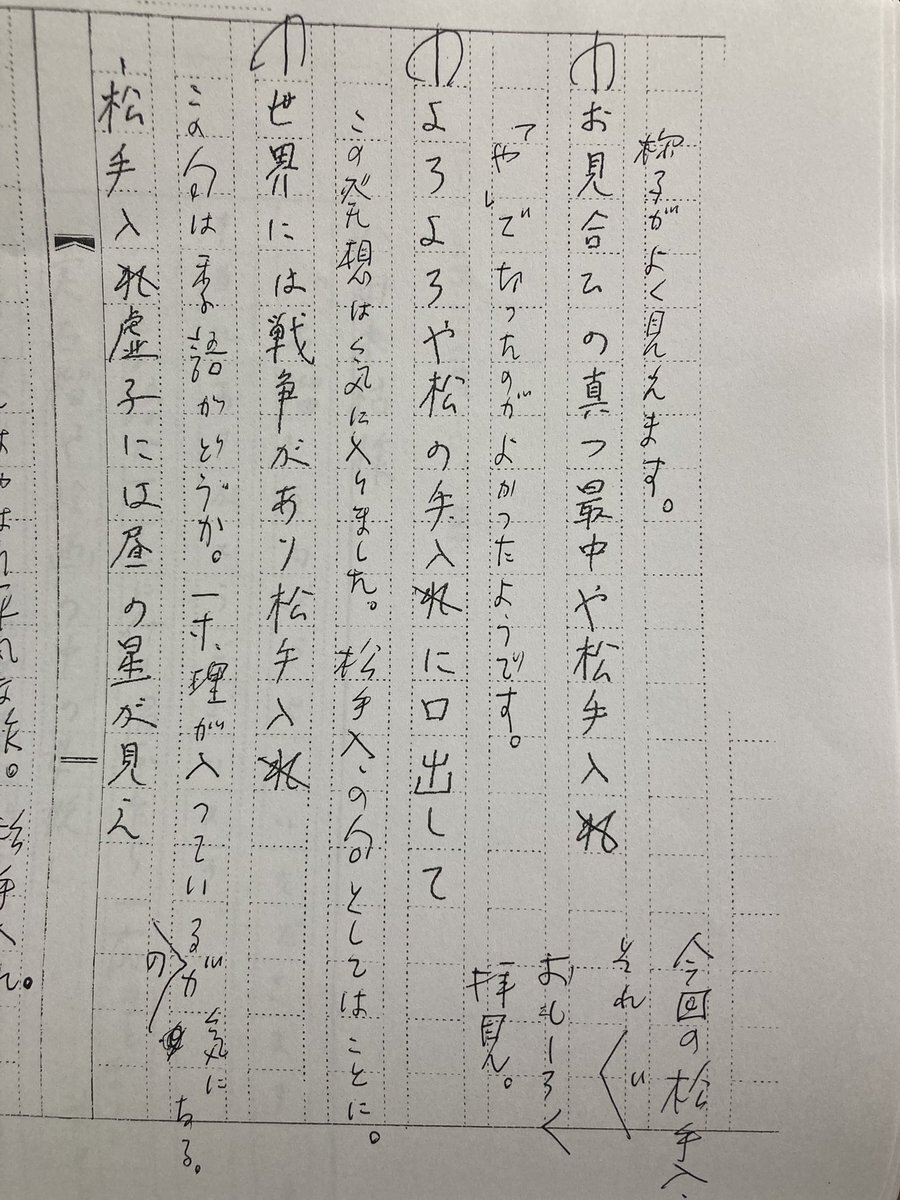 様子がよく見えます。
お見合ひの真つ最中や松手入れ
「や」で切ったのがよかったようです。
よろよろや松の手入れに口出して
この発想は気に入りました。松手入の句としてはことに。
世界には戦争があり松手入れ
この句は季語がどうか。一寸、理が入っているのが気になる。
松手入れ虚子には昼の星が見え
今回の松手入
それぐ
おもしろく
拝見。